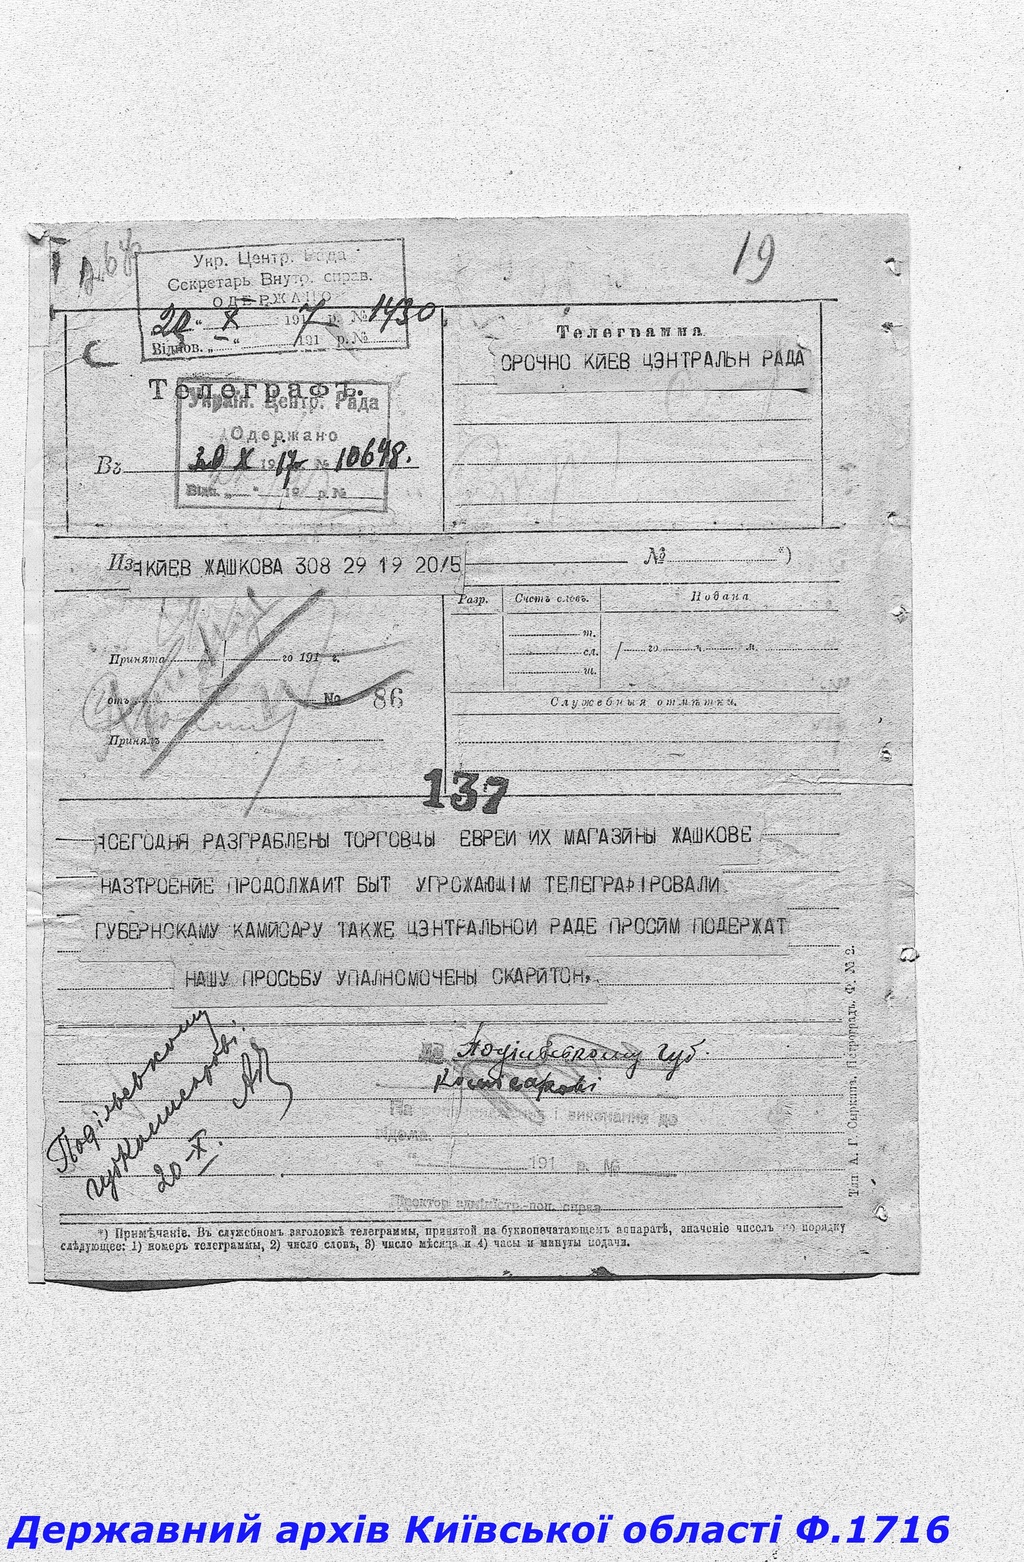 19
Укр. Центр. Рада
Секретарь Внутр. справ.
ОДЕРЖАНО
20 " X 1917 р. № 1430
Віднов. „ " 191 р. №
Телеграмма
СРОЧНО КИЕВ ЦЭНТРАЛЬН РАДА
Телеграфъ.
Україн. Центр. Рада
Одержано
20 X 1917 № 10648.
Відп. „ " 19 р. №
Въ
Изъ КИЕВ ЖАШКОВА 308 29 19 20/5
№ *)
Разр. Счетъ словъ. Подана
Принята го 191 г.
т.
сл.
ш.
го ч. м.
отъ № 86
Служебныя отмѣтки.
Принялъ
137
СЕГОДНЯ РАЗГРАБЛЕНЫ ТОРГОВЦЫ ЕВРЕИ ИХ МАГАЗИНЫ ЖАШКОВЕ
НАЗТРОЕНИЕ ПРОДОЛЖАИТ БЫТ УГРОЖАЮЩІМ ТЕЛЕГРАФІРОВАЛИ
ГУБЕРНСКАМУ КАМИСАРУ ТАКЖЕ ЦЭНТРАЛЬНОИ РАДЕ ПРОСИМ ПОДЕРЖАТ
НАШУ ПРОСЬБУ УПАЛНОМОЧЕНЫ СКАРИТОН
Подільському
губкомисарові.
20-X.
Подільському губ.
комісарові
і виконання до
191 р. №
Директор адміністр.-пол. справ
Тип А. Г. Сыркина. Петроградъ. Ф. № 2.
*) Примѣчаніе. Въ служебномъ заголовкѣ телеграммы, принятой на буквопечатающемъ аппаратѣ, значеніе чиселъ по порядку
слѣдующее: 1) номеръ телеграммы, 2) число словъ, 3) число мѣсяца и 4) часы и минуты подачи.
Державний архів Київської області Ф.1716